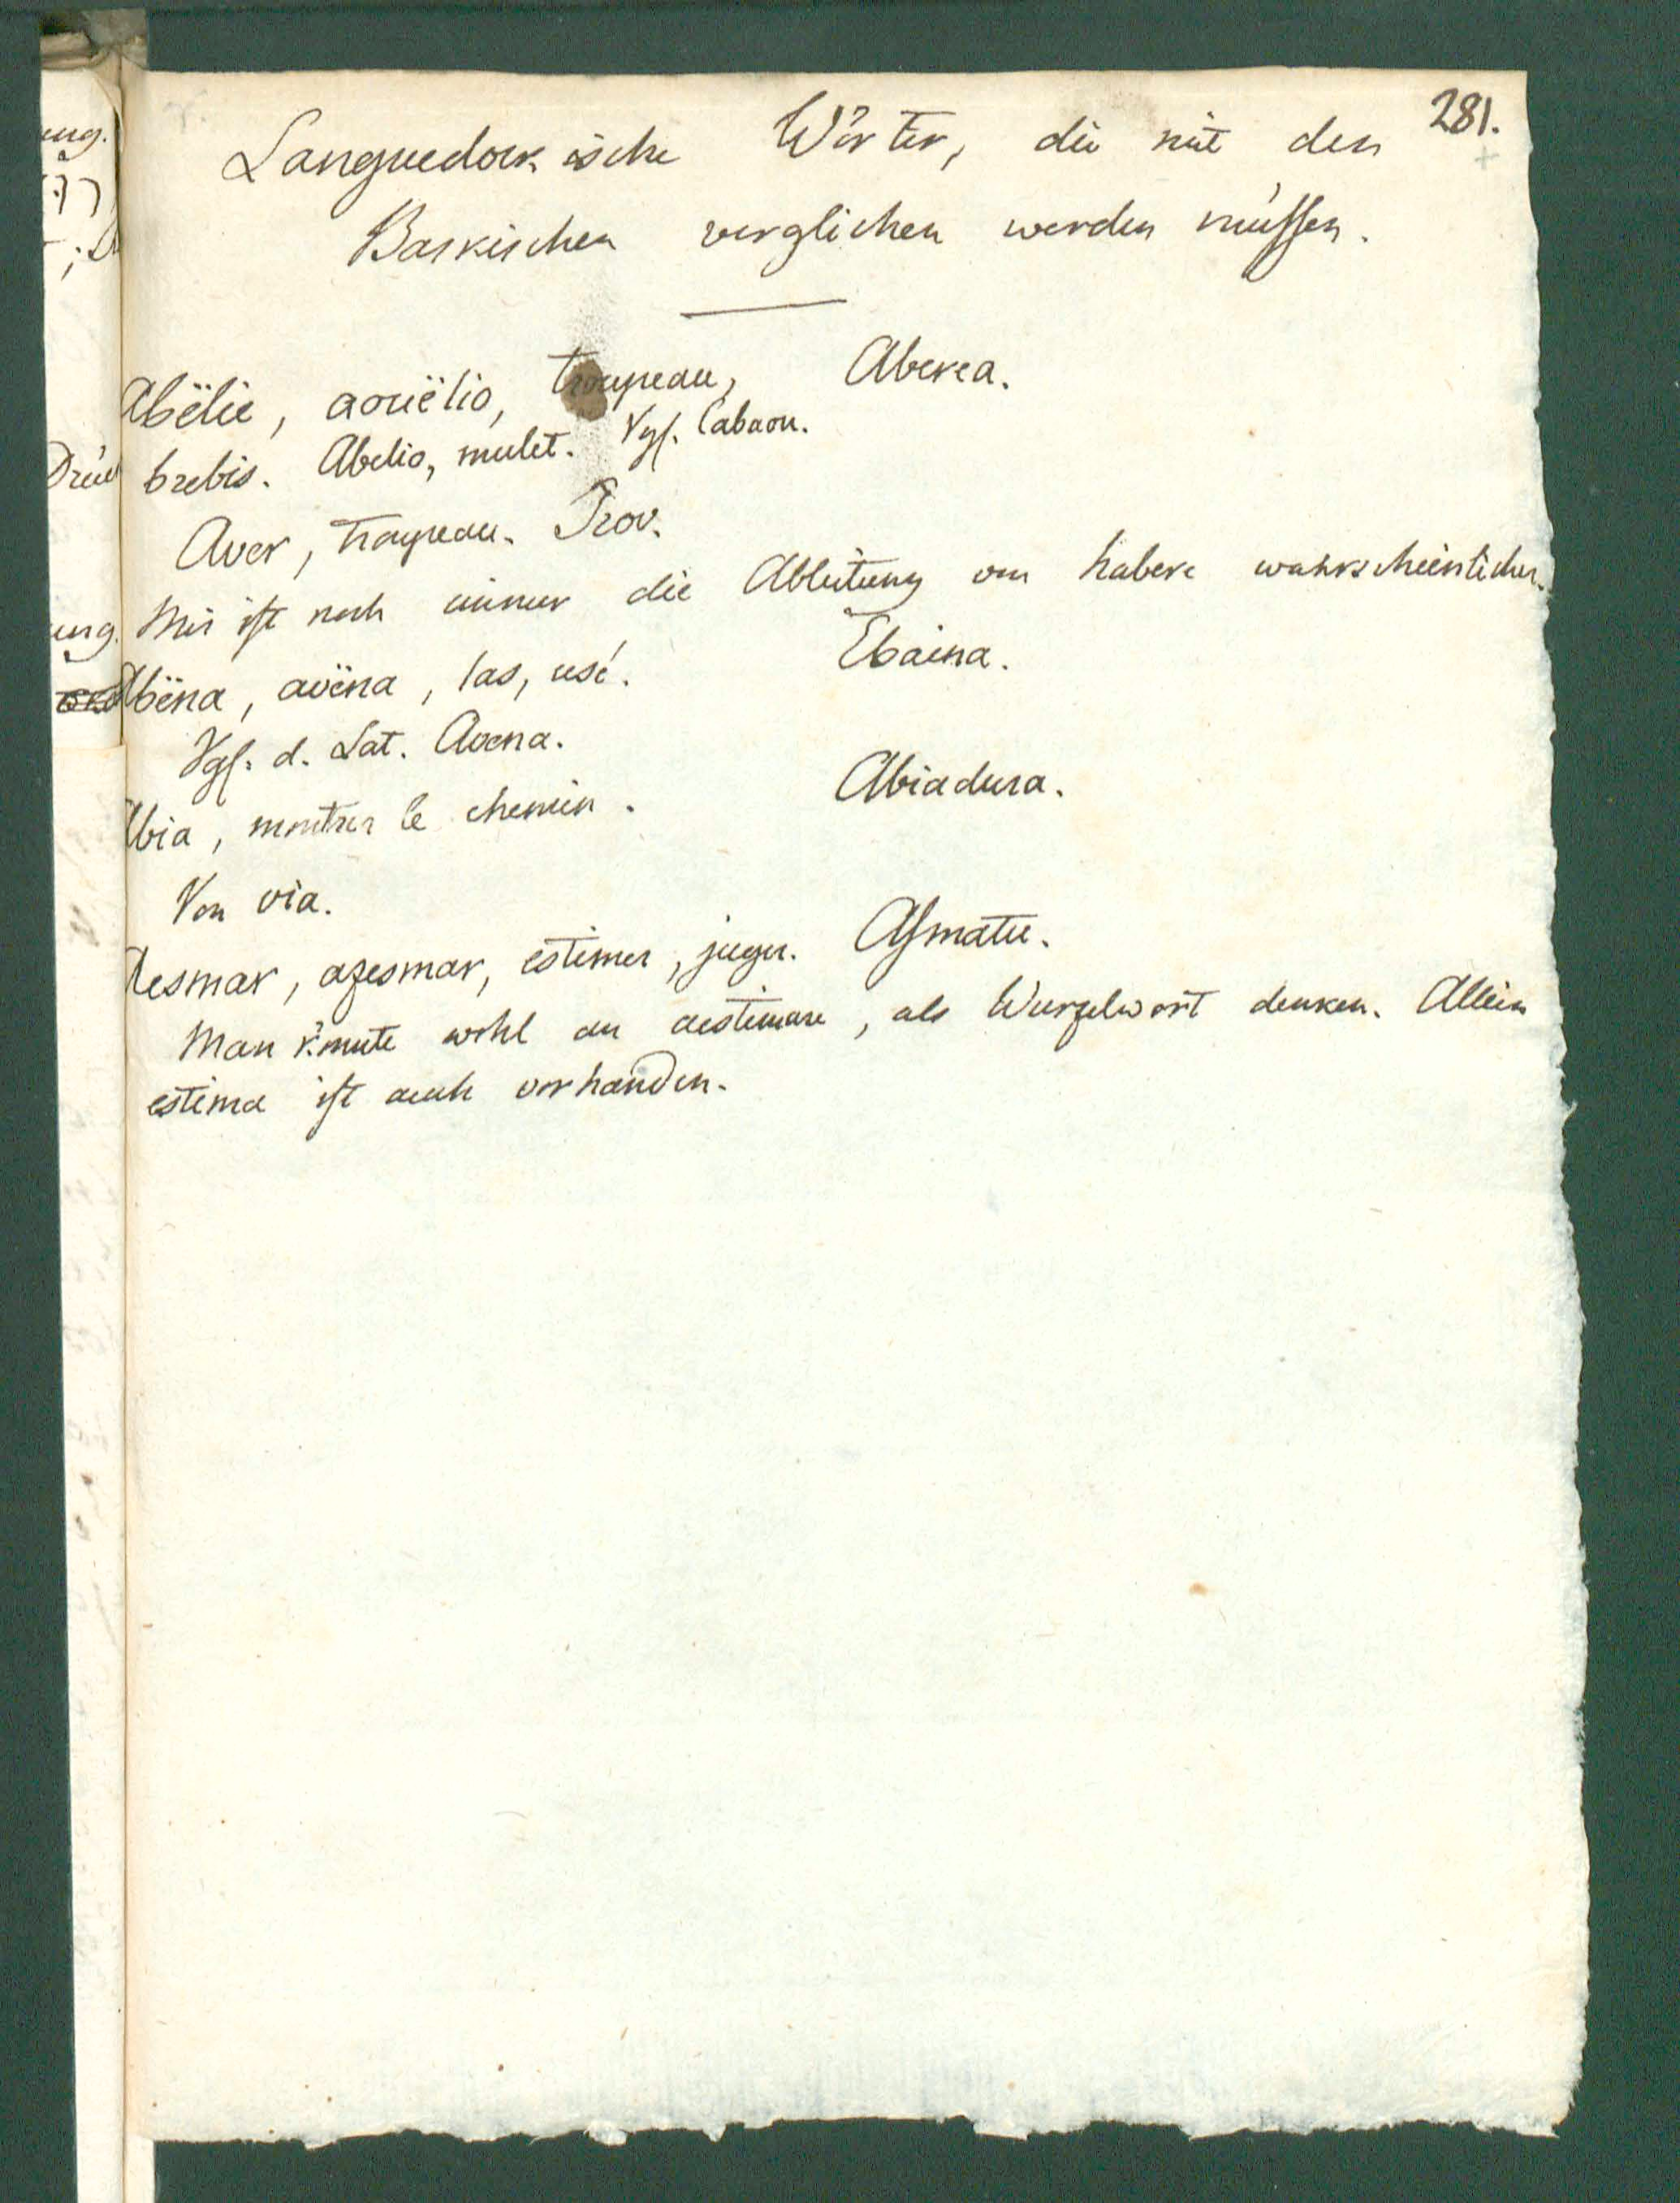 281.
Languedockische Wörter, die mit den
Baskischen verglichen werden müssen.
Abëlie, aouëlio, troupeau, Aberea.
brebis. Abelio, mulet. Vgl. Cabaou.
Aver, troupeau. Prov.
Mir ist noch immer die Ableitung von habere wahrscheinlicher.
Abëna, avëna, las, usé. Ebaina.
Vgl. d. Lat. Avena.
Abia, montrer le chemin. Abiadura.
Von via.
Aesmar, azesmar, estimer, juger. Asmatu.
Man könnte wohl an aestimare, als Wurzelwort denken. Allein
estima ist auch vorhanden.